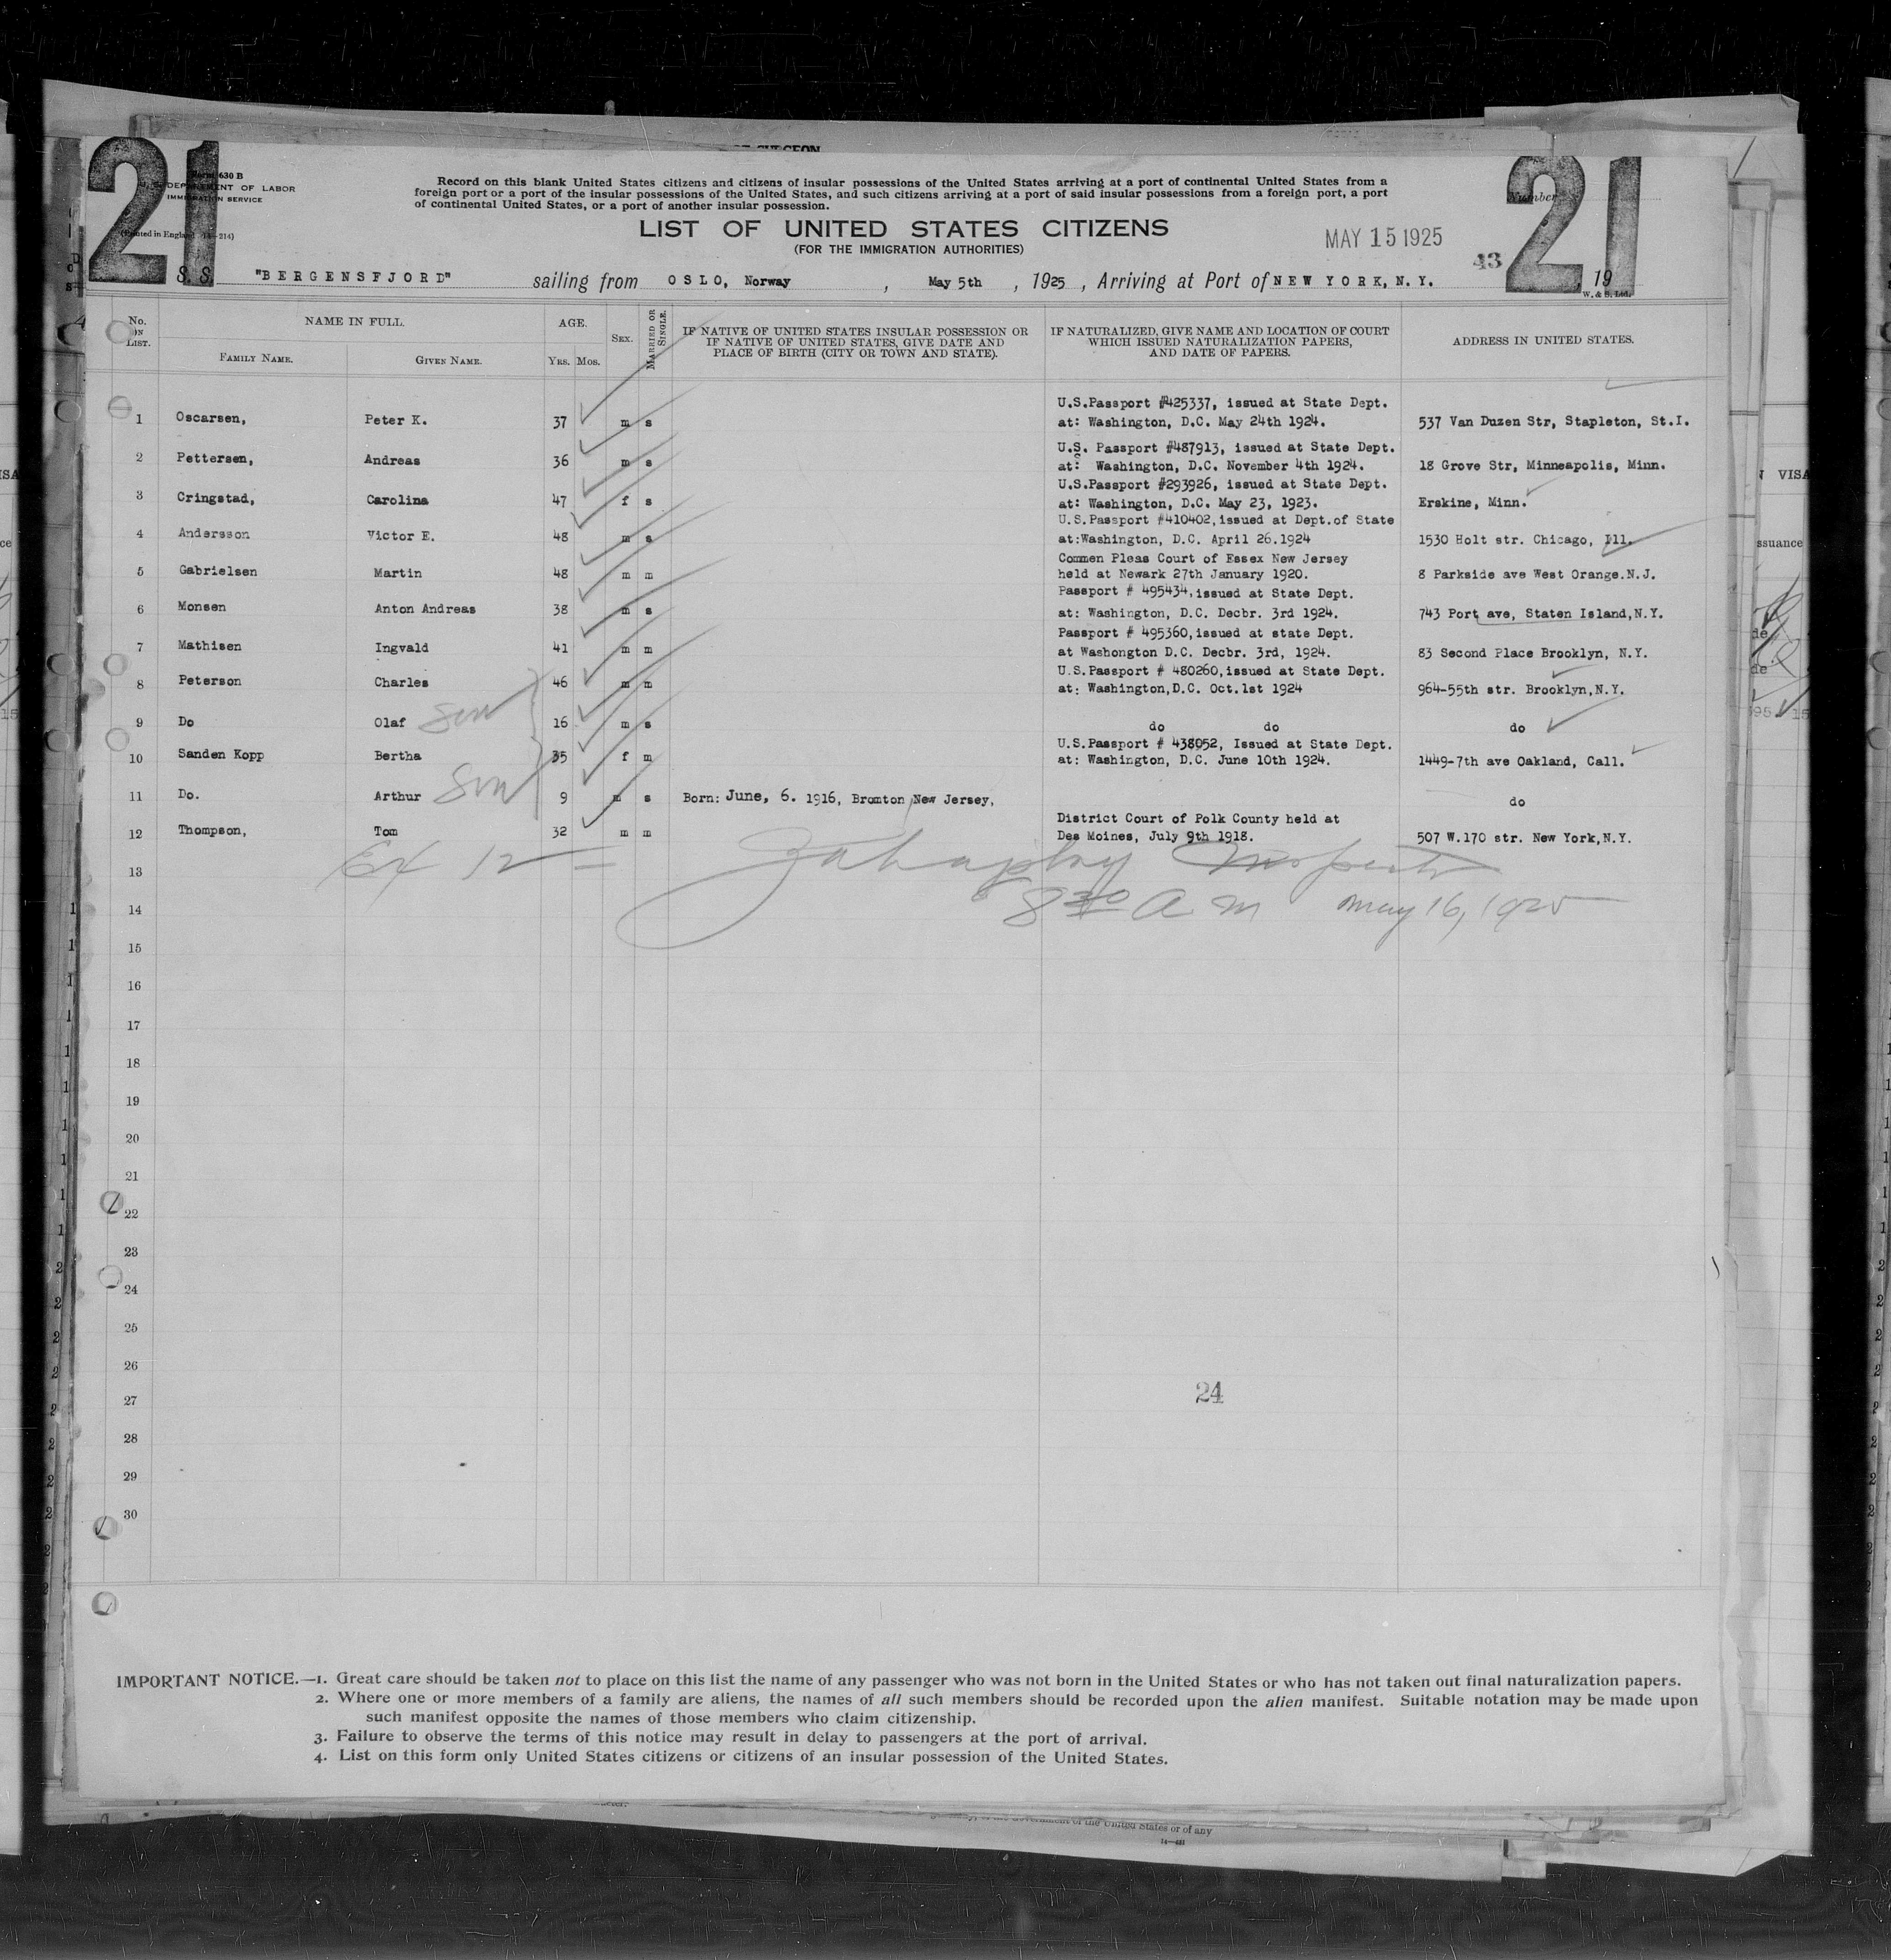 21
21
Form 630 B
U. S. DEPARTMENT OF LABOR
IMMIGRATION SERVICE
(Printed in England 14—214)
Record on this blank United States citizens and citizens of insular possessions of the United States arriving at a port of continental United States from a
foreign port or a port of the insular possessions of the United States, and such citizens arriving at a port of said insular possessions from a foreign port, a port
of continental United States, or a port of another insular possession.
Number
LIST OF UNITED STATES CITIZENS
(FOR THE IMMIGRATION AUTHORITIES)
MAY 15 1925
43
S. S. "BERGENSFJORD" sailing from OSLO, Norway , May 5th , 1925 , Arriving at Port of NEW YORK, N.Y. , 19
W. & S. Ltd.
No. ON LIST. NAME IN FULL. AGE. SEX. MARRIED OR SINGLE. IF NATIVE OF UNITED STATES INSULAR POSSESSION OR IF NATIVE OF UNITED STATES, GIVE DATE AND PLACE OF BIRTH (CITY OR TOWN AND STATE). IF NATURALIZED, GIVE NAME AND LOCATION OF COURT WHICH ISSUED NATURALIZATION PAPERS, AND DATE OF PAPERS. ADDRESS IN UNITED STATES.
FAMILY NAME. GIVEN NAME. YRS. MOS.
U.S.Passport #425337, issued at State Dept.
1 Oscarsen, Peter K. 37 m s at: Washington, D.C. May 24th 1924. 537 Van Duzen Str, Stapleton, St.I.
U.S. Passport #487913, issued at State Dept.
2 Pettersen, Andreas 36 m s at: Washington, D.C. November 4th 1924. 18 Grove Str, Minneapolis, Minn.
U.S.Passport #293926, issued at State Dept.
3 Cringstad, Carolina 47 f s at: Washington, D.C. May 23, 1923. Erskine, Minn.
U.S.Passport #410402, issued at Dept.of State
4 Andersson Victor E. 48 m s at:Washington, D.C. April 26.1924 1530 Holt str. Chicago, Ill.
Commen Pleas Court of Essex New Jersey
5 Gabrielsen Martin 48 m m held at Newark 27th January 1920. 8 Parkside ave West Orange.N.J.
Passport # 495434, issued at State Dept.
6 Monsen Anton Andreas 38 m s at: Washington, D.C. Decbr. 3rd 1924. 743 Port ave, Staten Island,N.Y.
Passport # 495360, issued at state Dept.
7 Mathisen Ingvald 41 m m at Washongton D.C. Decbr. 3rd, 1924. 83 Second Place Brooklyn, N.Y.
U.S.Passport # 480260,issued at State Dept.
8 Peterson Charles 46 m m at: Washington,D.C. Oct.1st 1924 964-55th str. Brooklyn,N.Y.
9 Do Olaf son 16 m s do do do
U.S.Passport # 438052, Issued at State Dept.
10 Sanden Kopp Bertha 35 f m at: Washington, D.C. June 10th 1924. 1449-7th ave Oakland, Call.
11 Do. Arthur son 9 m s Born: June, 6. 1916, Bromton, New Jersey, do
District Court of Polk County held at
12 Thompson, Tom 32 m m Des Moines, July 9th 1918. 507 W.170 str. New York,N.Y.
13
8 30 A M May 16, 1925
14
15
16
17
18
19
20
21
22
23
24
25
26
27 24
28
29
30
IMPORTANT NOTICE.—1. Great care should be taken not to place on this list the name of any passenger who was not born in the United States or who has not taken out final naturalization papers.
2. Where one or more members of a family are aliens, the names of all such members should be recorded upon the alien manifest. Suitable notation may be made upon
such manifest opposite the names of those members who claim citizenship.
3. Failure to observe the terms of this notice may result in delay to passengers at the port of arrival.
4. List on this form only United States citizens or citizens of an insular possession of the United States.